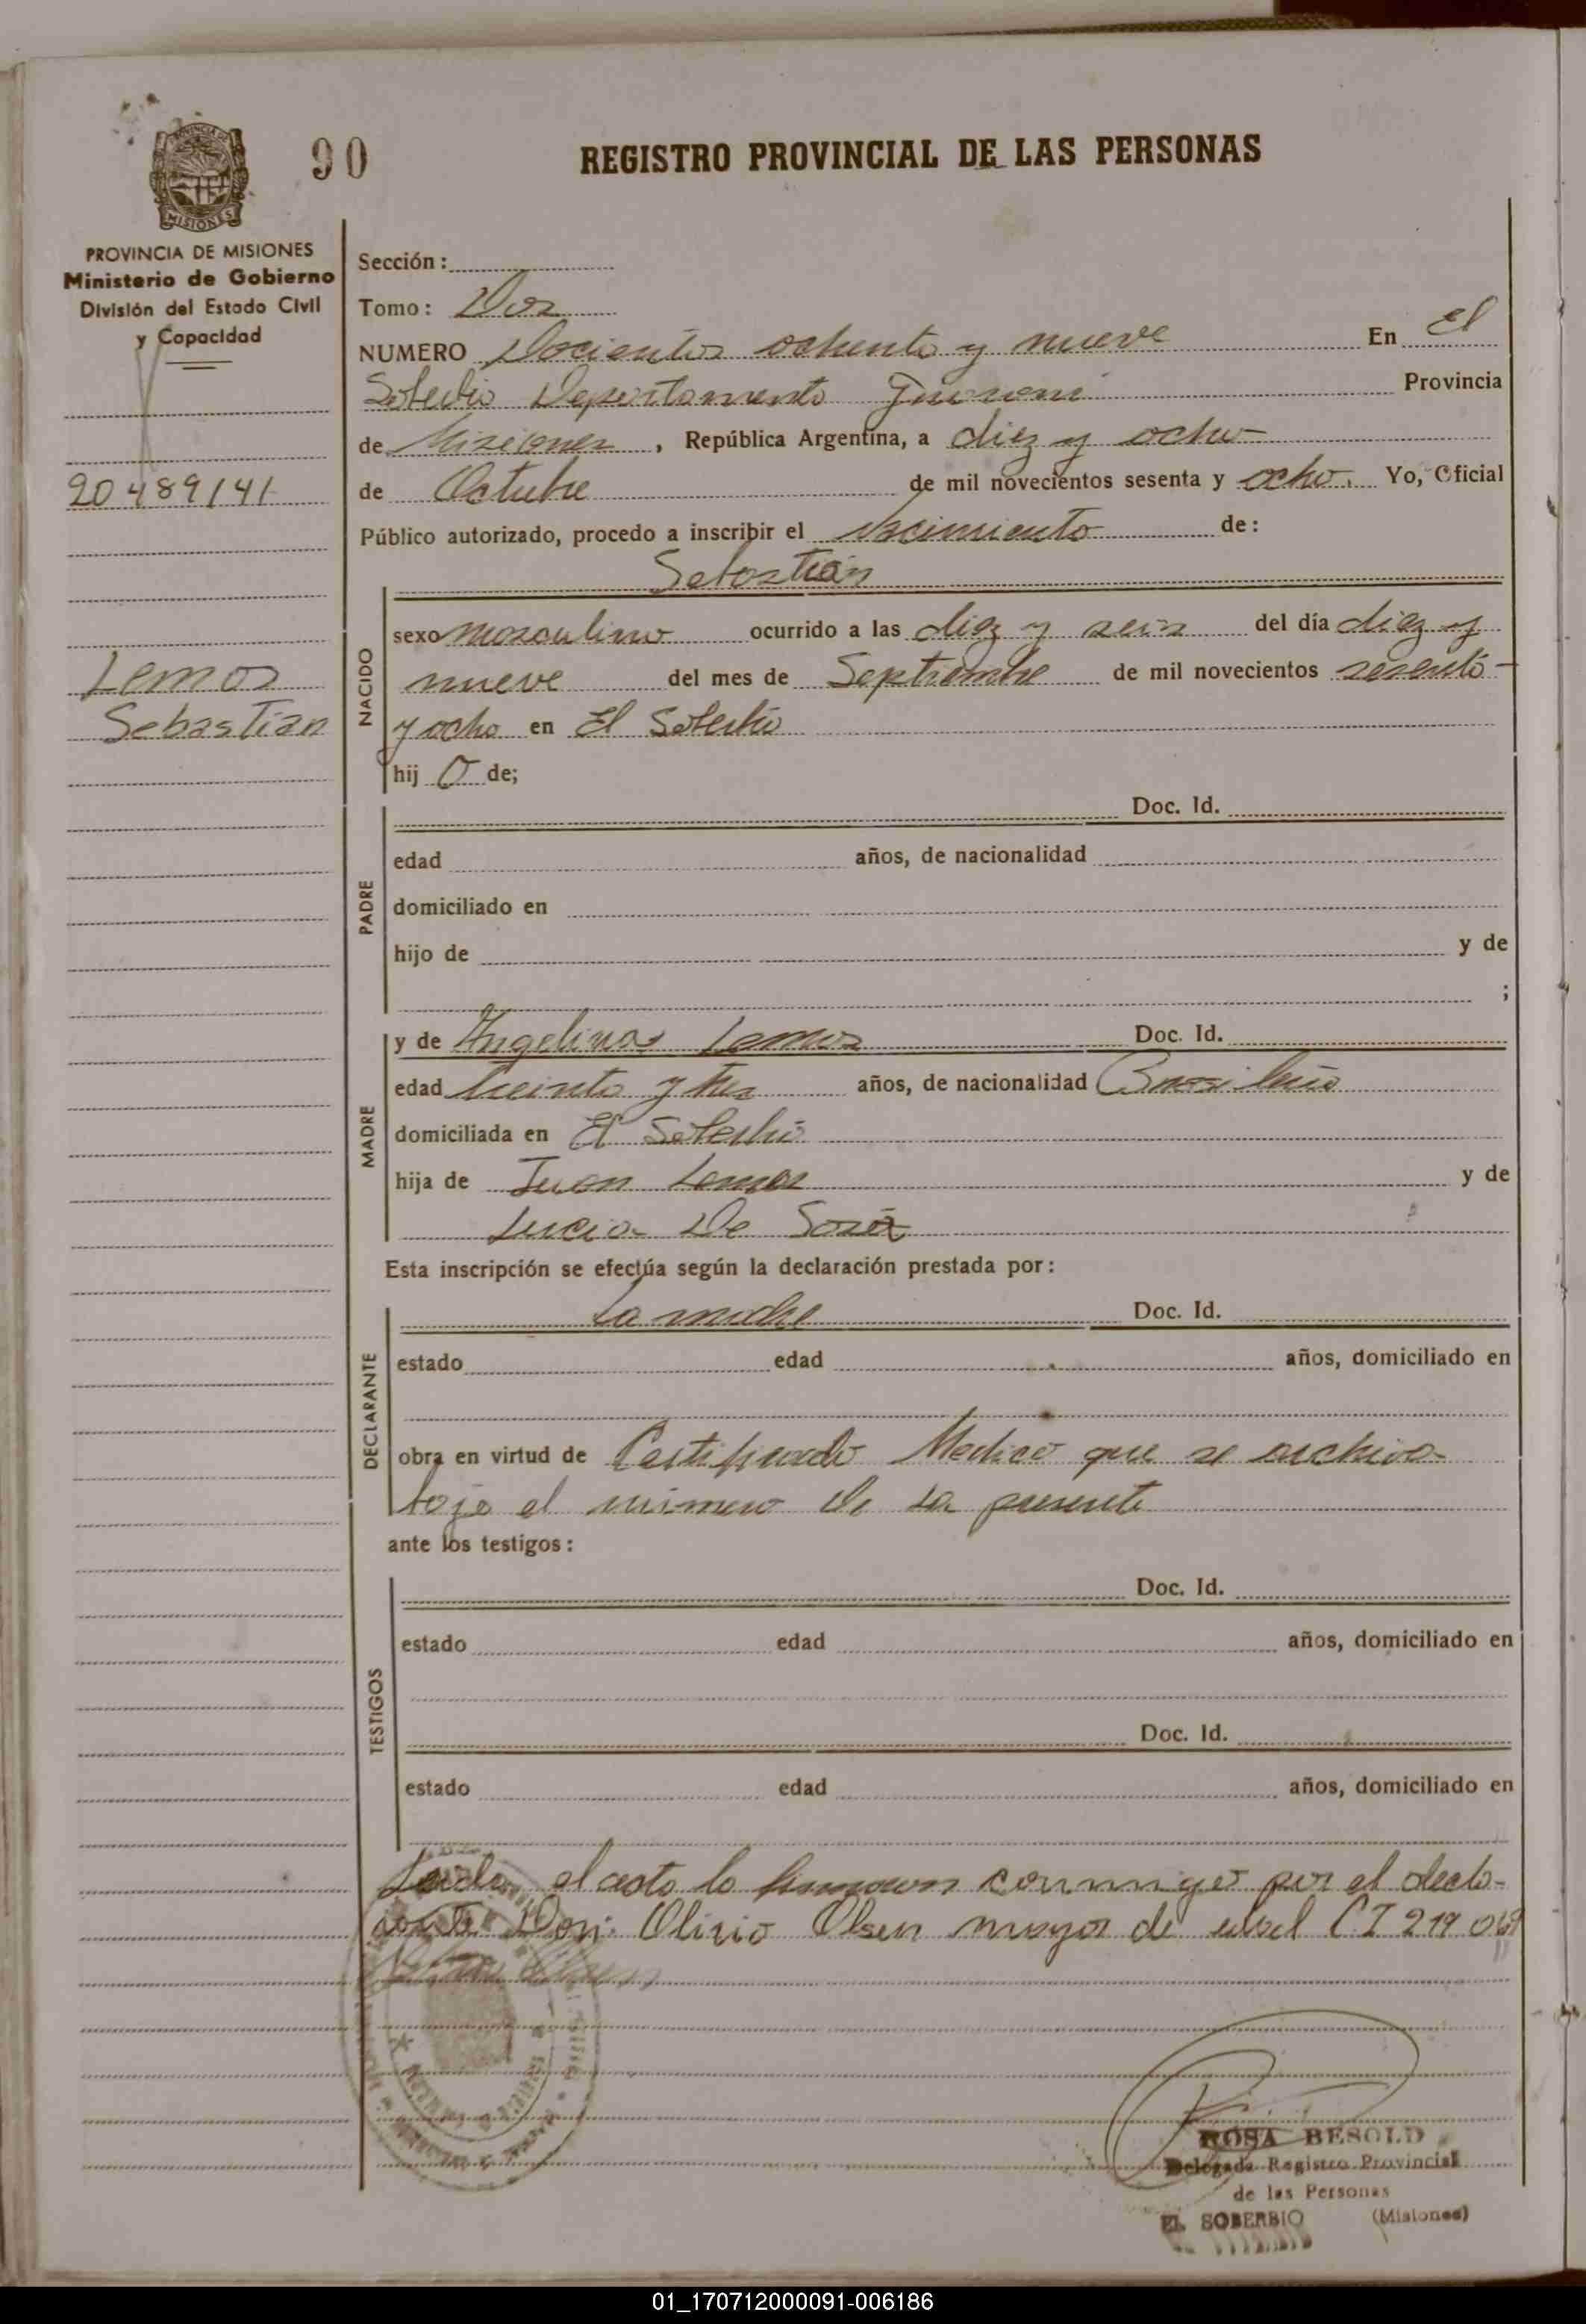 PROVINCIA DE
MISIONES
90
REGISTRO PROVINCIAL DE LAS PERSONAS
PROVINCIA DE MISIONES
Ministerio de Gobierno
División del Estado Civil
y Capacidad
20489141
Lemos
Sebastian
Sección:
Tomo: Dos
NUMERO Docientos ochenta y nueve En El
Soberbio Departamento Guarani Provincia
de Misiones, República Argentina, a diez y ocho
de Octubre de mil novecientos sesenta y ocho. Yo, Oficial
Público autorizado, procedo a inscribir el nacimiento de:
Sebastian
NACIDO
sexo masculino ocurrido a las diez y seis del día diez y
nueve del mes de Septiembre de mil novecientos sesenta
y ocho en El Soberbio
hij o de;
PADRE
Doc. Id.
edad años, de nacionalidad
domiciliado en
hijo de y de
;
MADRE
y de Angelina Lemos Doc. Id.
edad treinta y tres años, de nacionalidad Brasileña
domiciliada en El Soberbio
hija de Juan Lemos y de
Lucia De Soza
Esta inscripción se efectúa según la declaración prestada por:
DECLARANTE
La madre Doc. Id.
estado edad años, domiciliado en
obra en virtud de Certificado Medico que se archiva
bajo el número de la presente
ante los testigos:
TESTIGOS
Doc. Id.
estado edad años, domiciliado en
Doc. Id.
estado edad años, domiciliado en
Leida el acta la firman conmigo por el decla-
rante Don: Olirio Olsen mayor de edad C I 219 049
ROSA BESOLD
Delegada Registro Provincial
de las Personas
EL SOBERBIO (Misiones)
01_170712000091-006186